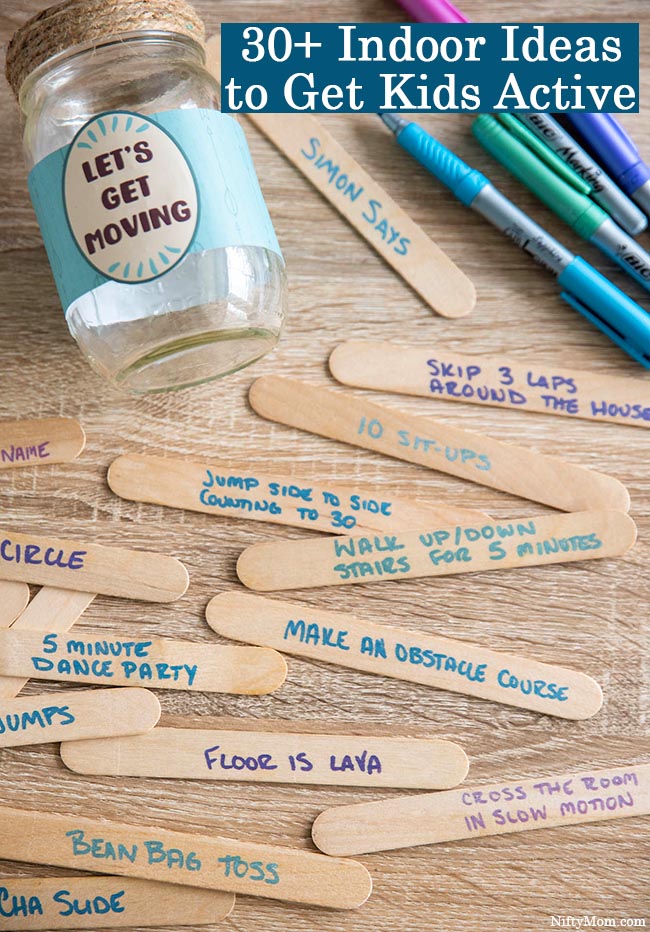 30+ Indoor Ideas
to Get Kids Active
LET'S
GET
MOVING
SIMON SAYS
BIC Marking
BIC
SKIP 3 LAPS
AROUND THE HOUSE
10 SIT-UPS
NAME
JUMP SIDE TO SIDE
COUNTING TO 30
WALK UP/DOWN
STAIRS FOR 5 MINUTES
CIRCLE
MAKE AN OBSTACLE COURSE
5 MINUTE
DANCE PARTY
JUMPS
FLOOR IS LAVA
CROSS THE ROOM
IN SLOW MOTION
BEAN BAG TOSS
CHA SLIDE
NiftyMom.com